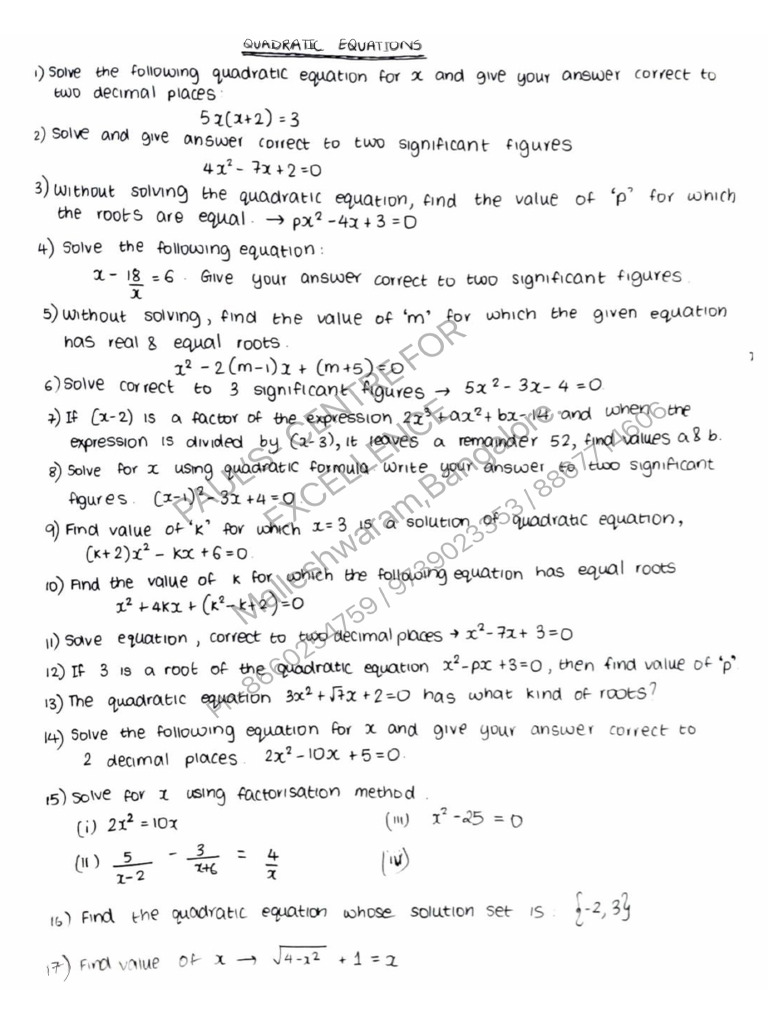 QUADRATIC EQUATIONS
1) Solve the following quadratic equation for x and give your answer correct to
two decimal places
5x(x+2) = 3
2) Solve and give answer correct to two significant figures
4x² - 7x + 2 = 0
3) Without solving the quadratic equation, find the value of 'p' for which
the roots are equal. → px² - 4x + 3 = 0
4) Solve the following equation:
x - 18/x = 6. Give your answer correct to two significant figures.
5) Without solving, find the value of 'm' for which the given equation
has real & equal roots.
x² - 2(m-1)x + (m+5) = 0
6) Solve correct to 3 significant figures → 5x² - 3x - 4 = 0
7) If (x-2) is a factor of the expression 2x³ + ax² + bx - 14 and when the
expression is divided by (x-3), it leaves a remainder 52, find values a & b.
8) Solve for x using quadratic formula write your answer to two significant
figures. (x-1)² - 3x + 4 = 0
9) Find value of 'k' for which x = 3 is a solution of quadratic equation,
(k+2)x² - kx + 6 = 0
10) Find the value of k for which the following equation has equal roots
x² + 4kx + (k² - k + 2) = 0
11) Solve equation, correct to two decimal places → x² - 7x + 3 = 0
12) If 3 is a root of the quadratic equation x² - px + 3 = 0, then find value of 'p'
13) The quadratic equation 3x² + √7x + 2 = 0 has what kind of roots?
14) Solve the following equation for x and give your answer correct to
2 decimal places. 2x² - 10x + 5 = 0.
15) Solve for x using factorisation method.
(i) 2x² = 10x (iii) x² - 25 = 0
(ii) 5/(x-2) - 3/(x+6) = 4/x (iv)
16) Find the quadratic equation whose solution set is : {-2, 3}
17) Find value of x → √(4-x²) + 1 = x
PAULS CENTRE FOR
EXCELLENCE
Malleshwaram, Bangalore
8660254759 / 9739023353 / 8867714605